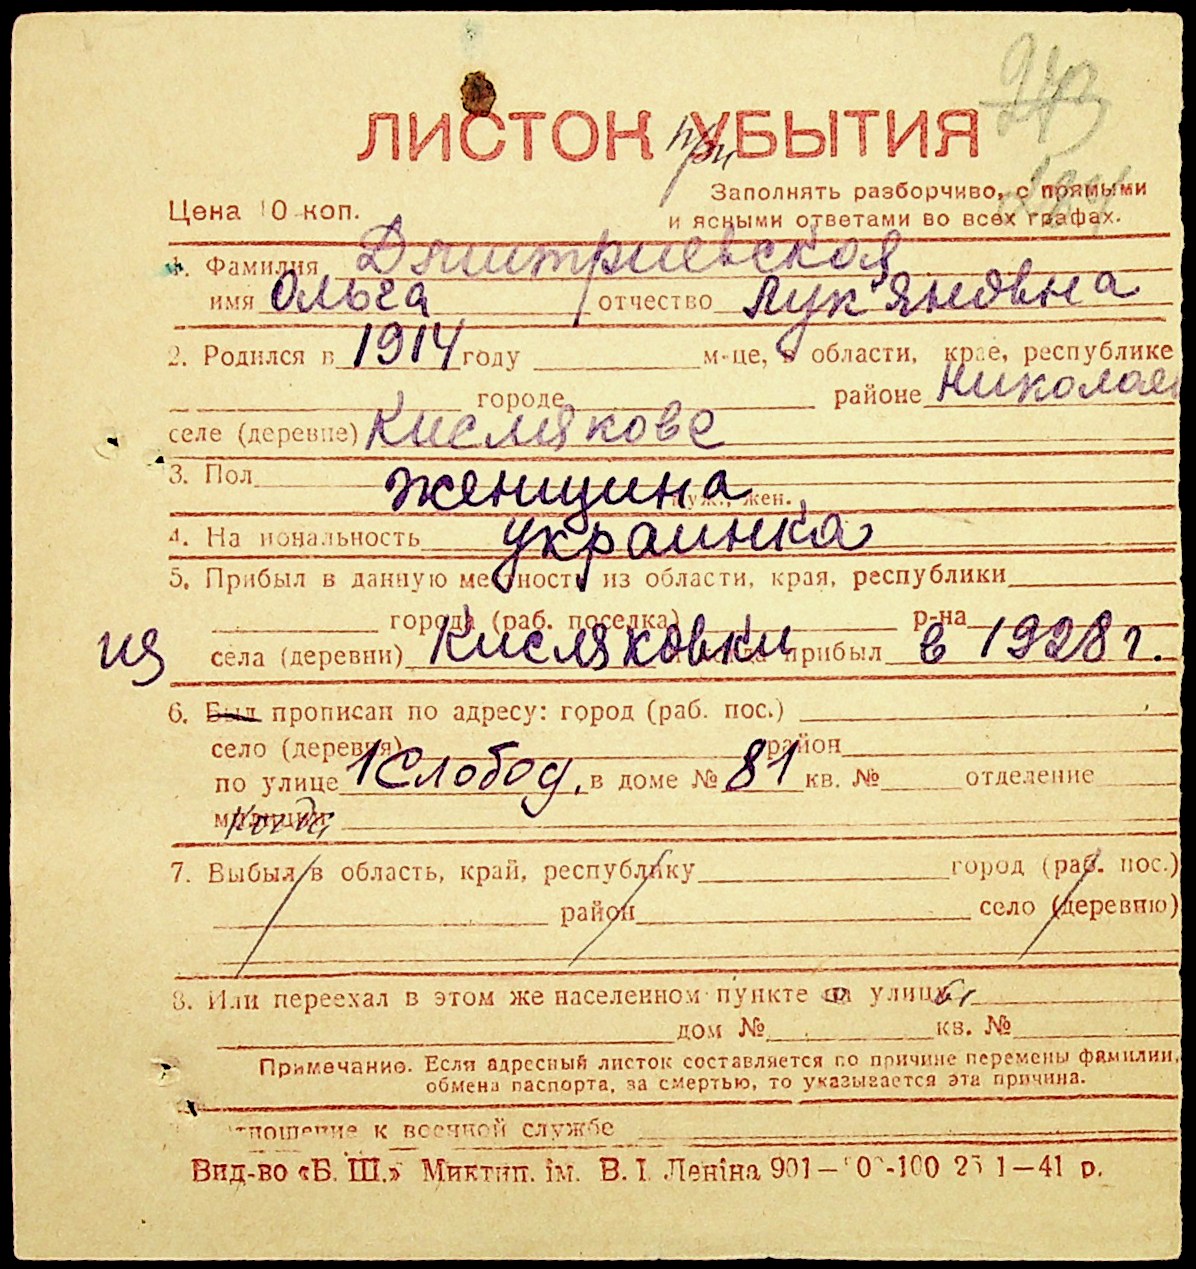 ЛИСТОК УБЫТИЯ
при
Заполнять разборчиво, с прямыми
и ясными ответами во всех графах.
Цена 10 коп.
1. Фамилия Дмитриевская
имя Ольга отчество Лук'яновна
2. Родился в 1914 году м-це, в области, крае, республике
городе районе Николаев
селе (деревне) Кислякове
3. Пол женщина
муж., жен.
4. Национальность украинка
5. Прибыл в данную местность из области, края, республики
города (раб. поселка) р-на
из села (деревни) Кисляковки прибыл в 1928 г.
6. Был прописан по адресу: город (раб. пос.)
село (деревня) район
по улице 1 Слобод. в доме № 81 кв. № отделение
милиции
7. Выбыл в область, край, республику город (раб. пос.)
район село (деревню)
8. Или переехал в этом же населенном пункте на улицу
дом № кв. №
Примечание. Если адресный листок составляется по причине перемены фамилии,
обмена паспорта, за смертью, то указывается эта причина.
тношение к военной службе
Вид-во «Б. Ш.» Миктип. ім. В. І. Леніна 901— 0 -100 25 1—41 р.